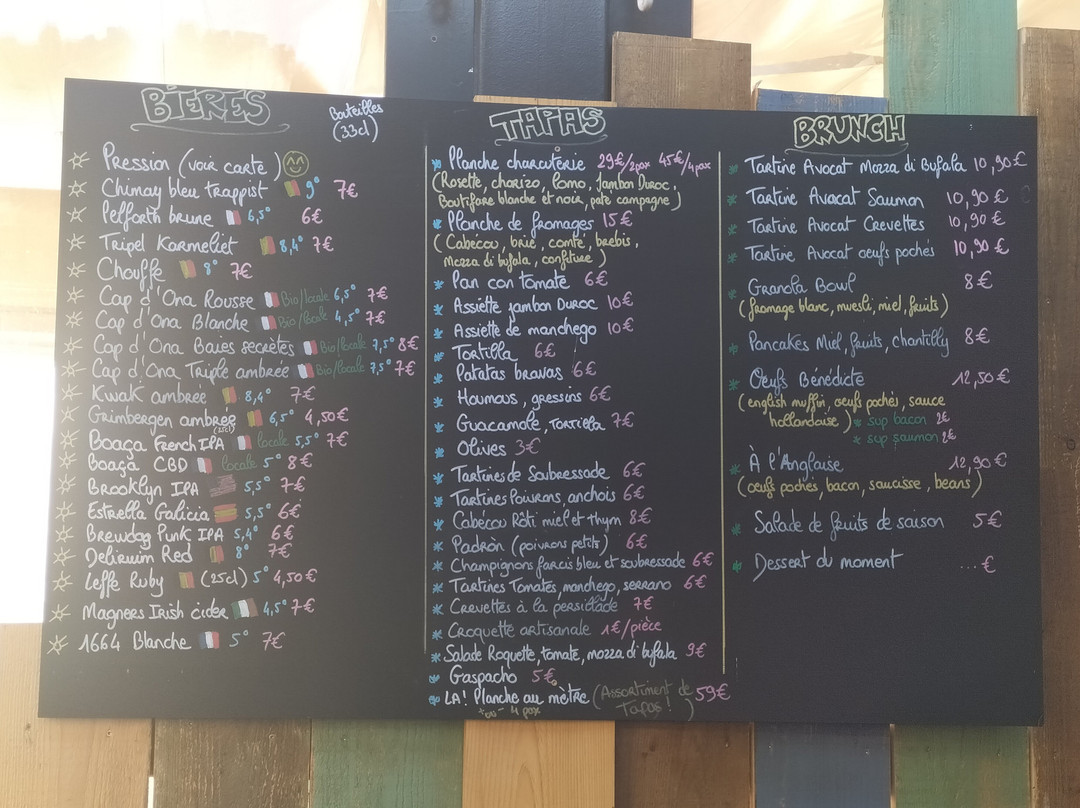 BIERES
Bouteilles
(33cl)
Pression (voir carte)
Chimay bleu trappist 9° 7€
Pelforth brune 6,5° 6€
Tripel Karmeliet 8,4° 7€
Chouffe 8° 7€
Cap d'Ona Rousse Bio/locale 6,5° 7€
Cap d'Ona Blanche Bio/locale 4,5° 7€
Cap d'Ona Baies secrètes Bio/locale 7,5° 8€
Cap d'Ona Triple ambrée Bio/locale 7,5° 7€
Kwak ambrée 8,4° 7€
Grimbergen ambrée (25cl) 6,5° 4,50€
Boaça French IPA locale 5,5° 7€
Boaça CBD locale 5° 8€
Brooklyn IPA 5,5° 7€
Estrella Galicia 5,5° 6€
Brewdog Punk IPA 5,4° 6€
Deliruim Red 8° 7€
Leffe Ruby (25cl) 5° 4,50€
Magners Irish cider 4,5° 7€
1664 Blanche 5° 7€
TAPAS
Planche charcuterie 29€/2pax 45€/4pax
(Rosette, chorizo, Lomo, Jambon Duroc,
Boutifare blanche et noir, pate campagne)
Planche de fromages 15€
(Cabécou, brie, comté, brebis,
Mozza di bufala, confiture)
Pan con tomate 6€
Assiette jambon Duroc 10€
Assiette de manchego 10€
Tortilla 6€
Patatas bravas 6€
Houmous, gressins 6€
Guacamole, Tortilla 7€
Olives 3€
Tartines de Soubressade 6€
Tartines Poivrons, anchois 6€
Cabécou Rôti miel et thym 8€
Padròn (poivrons petits) 6€
Champignons farcis bleu et soubressade 6€
Tartines Tomates, manchego, serrano 6€
Crevettes à la persillade 7€
Croquette artisanale 1€/pièce
Salade Roquette, tomate, mozza di bufala 9€
Gaspacho 5€
LA! Planche au mètre (Assortiment de Tapas!) 59€
4 pax
BRUNCH
Tartine Avocat Mozza di Bufala 10,90€
Tartine Avocat Saumon 10,90€
Tartine Avocat Crevettes 10,90€
Tartine Avocat oeufs pochés 10,90€
Granola Bowl 8€
(fromage blanc, muesli, miel, fruits)
Pancakes Miel, fruits, chantilly 8€
Oeufs Bénédicte 12,50€
(english muffin, oeufs pochés, sauce
hollandaise) * sup bacon 2€
* sup saumon 2€
À l'Anglaise 12,90€
(oeufs pochés, bacon, saucisse, beans)
Salade de fruits de saison 5€
Dessert du moment ...€